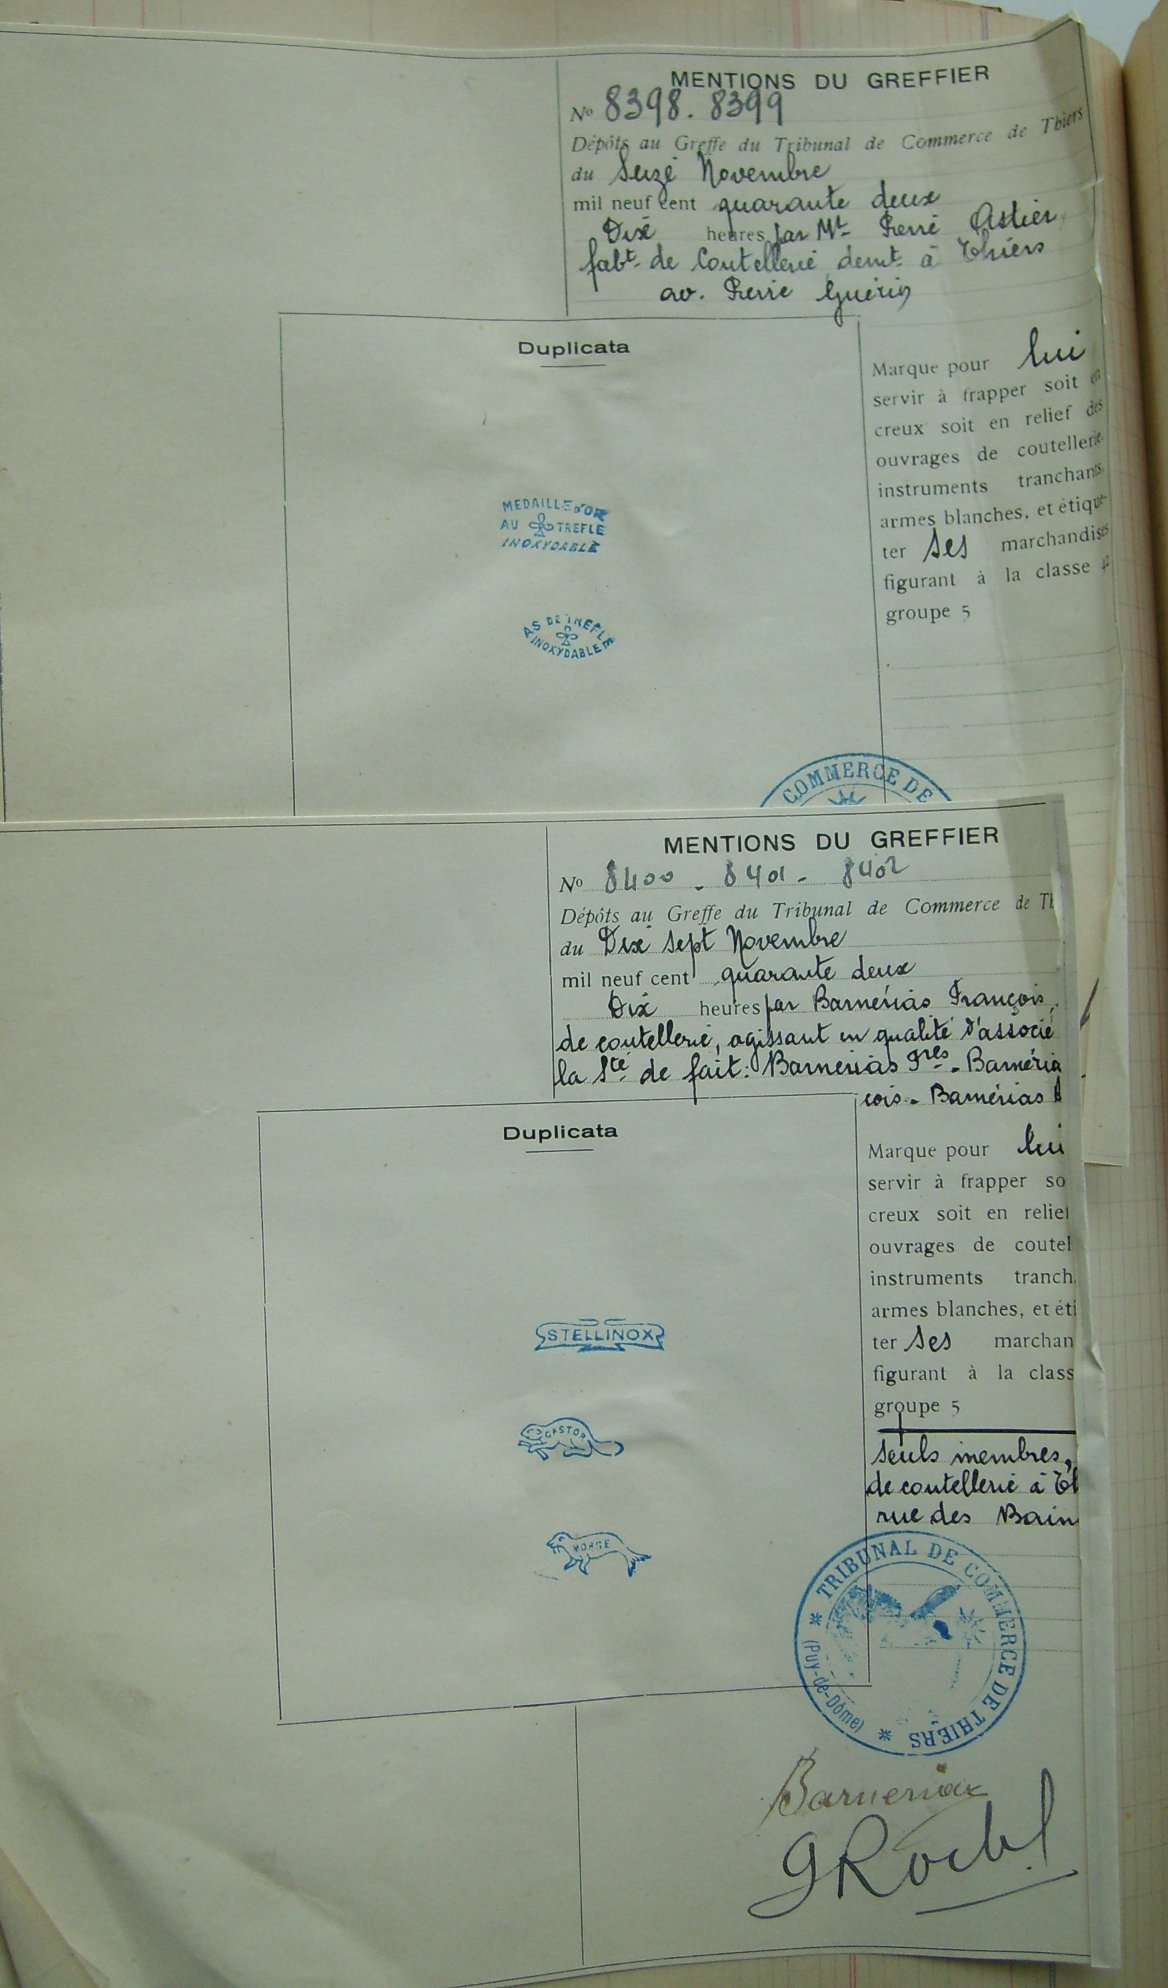 MENTIONS DU GREFFIER
No 8398. 8399
Dépôts au Greffe du Tribunal de Commerce de Thiers
du Seize Novembre
mil neuf cent quarante deux
Dix heures par Mr Pierre Astier
fabt de Coutellerie demt à Thiers
av. Pierre Guérin
Duplicata
Marque pour lui
servir à frapper soit en
creux soit en relief des
ouvrages de coutellerie
instruments tranchants
armes blanches, et étique-
ter ses marchandises
figurant à la classe
groupe 5
MEDAILLE D'OR
AU TREFLE
INOXYDABLE
AS DE TREFLE
INOXYDABLE
COMMERCE DE
MENTIONS DU GREFFIER
No 8400 - 8401 - 8402
Dépôts au Greffe du Tribunal de Commerce de Th
du Dix sept Novembre
mil neuf cent quarante deux
Dix heures par Barnérias François,
de coutellerie, agissant en qualité d'associé
la Sté de fait: Barnérias Fres - Barnéria
çois - Barnérias
Duplicata
Marque pour lui
servir à frapper so
creux soit en relief
ouvrages de coutel
instruments tranch
armes blanches, et éti
ter ses marchan
figurant à la class
groupe 5
seuls membres,
de coutellerie à Th
rue des Bain
STELLINOX
CASTOR
MORSE
TRIBUNAL DE COMMERCE DE THIERS
(Puy-de-Dôme)
Barnerias